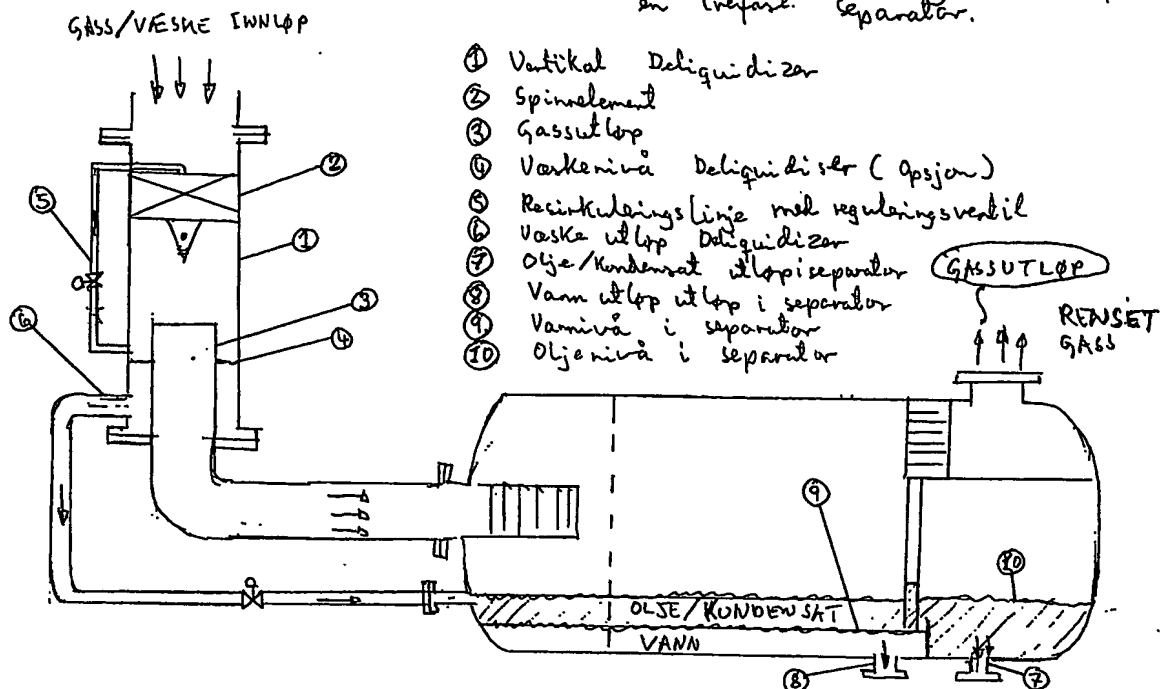 en trefase separator.
GASS/VÆSKE INNLØP
① Vertikal Deliquidizer
② Spinnelement
③ Gassutløp
④ Væskenivå Deliquidiser (Opsjon)
⑤ Resirkuleringslinje med reguleringsventil
⑥ Væske utløp Deliquidizer
⑦ Olje/Kondensat utløp i separator
⑧ Vann utløp utløp i separator
⑨ Vannivå i separator
⑩ Oljenivå i separator
GASSUTLØP
RENSET
GASS
②
⑤
①
③
⑥
④
⑨
⑩
OLJE/KONDENSAT
VANN
⑧
⑦